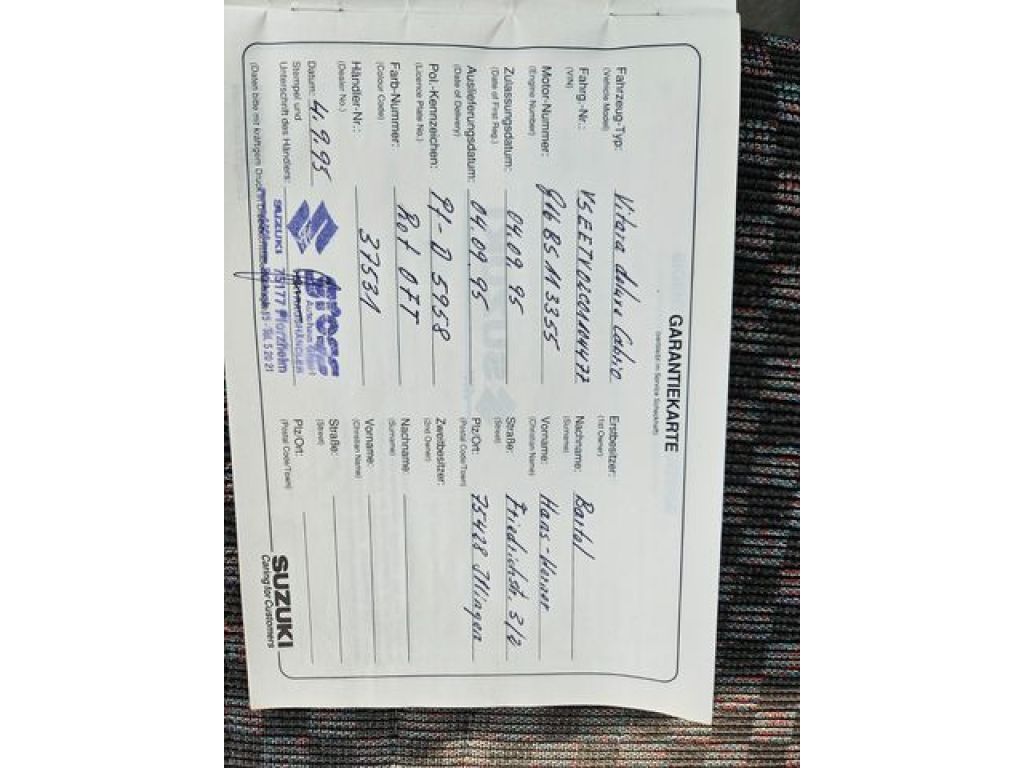 GARANTIEKARTE
(verbleibt im Service Scheckheft)
Fahrzeug-Typ: Vitara deluxe Cabrio
(Vehicle Model)
Fahrg.-Nr.: VSEETV01C01104477
(VIN)
Motor-Nummer: G16BS113355
(Engine Number)
Zulassungsdatum: 04.09.95
(Date of First Reg.)
Auslieferungsdatum: 04.09.95
(Date of Delivery)
Pol.-Kennzeichen: PF-D 5958
(Licence Plate No.)
Farb-Nummer: Rot 07T
(Colour Code)
Händler-Nr.: 37531
(Dealer No.)
Datum: 4.9.95
Stempel und
Unterschrift des Händlers:
(Daten bitte mit kräftigem Druck in
SUZUKI
Autohaus
75177 Pforzheim
Tel. 5 20 21
Erstbesitzer:
(1st Owner)
Nachname: Bartol
(Surname)
Vorname: Hans-Werner
(Christian Name)
Straße: Friedrichst. 3/2
(Street)
Plz/Ort: 75428 Illingen
(Postal Code/Town)
Zweitbesitzer:
(2nd Owner)
Nachname:
(Surname)
Vorname:
(Christian Name)
Straße:
(Street)
Plz/Ort:
(Postal Code/Town)
SUZUKI
Caring for Customers